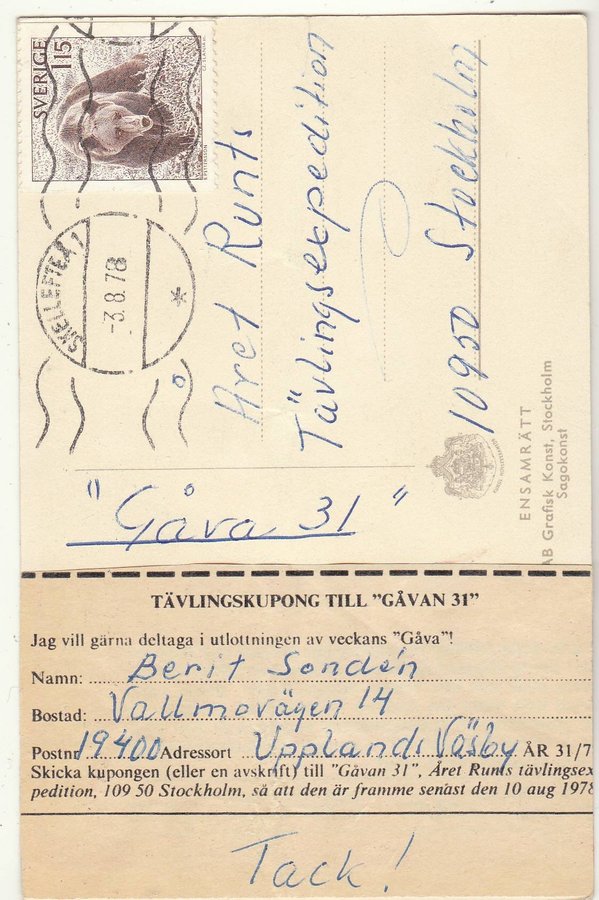 SVERIGE 115
SKELLEFTEÅ 1
-3.8.78
*
Året Runts
Tävlingsexpedition
10950 Stockholm
"Gåva 31"
ENSAMRÄTT
AB Grafisk Konst, Stockholm
Sagokonst
TÄVLINGSKUPONG TILL "GÅVAN 31"
Jag vill gärna deltaga i utlottningen av veckans "Gåva"!
Namn: Berit Sondén
Bostad: Vallmovägen 14
Postnr 19400 Adressort Upplands Väsby ÅR 31/7
Skicka kupongen (eller en avskrift) till "Gåvan 31", Året Runts tävlingsex
pedition, 109 50 Stockholm, så att den är framme senast den 10 aug 1978
Tack!